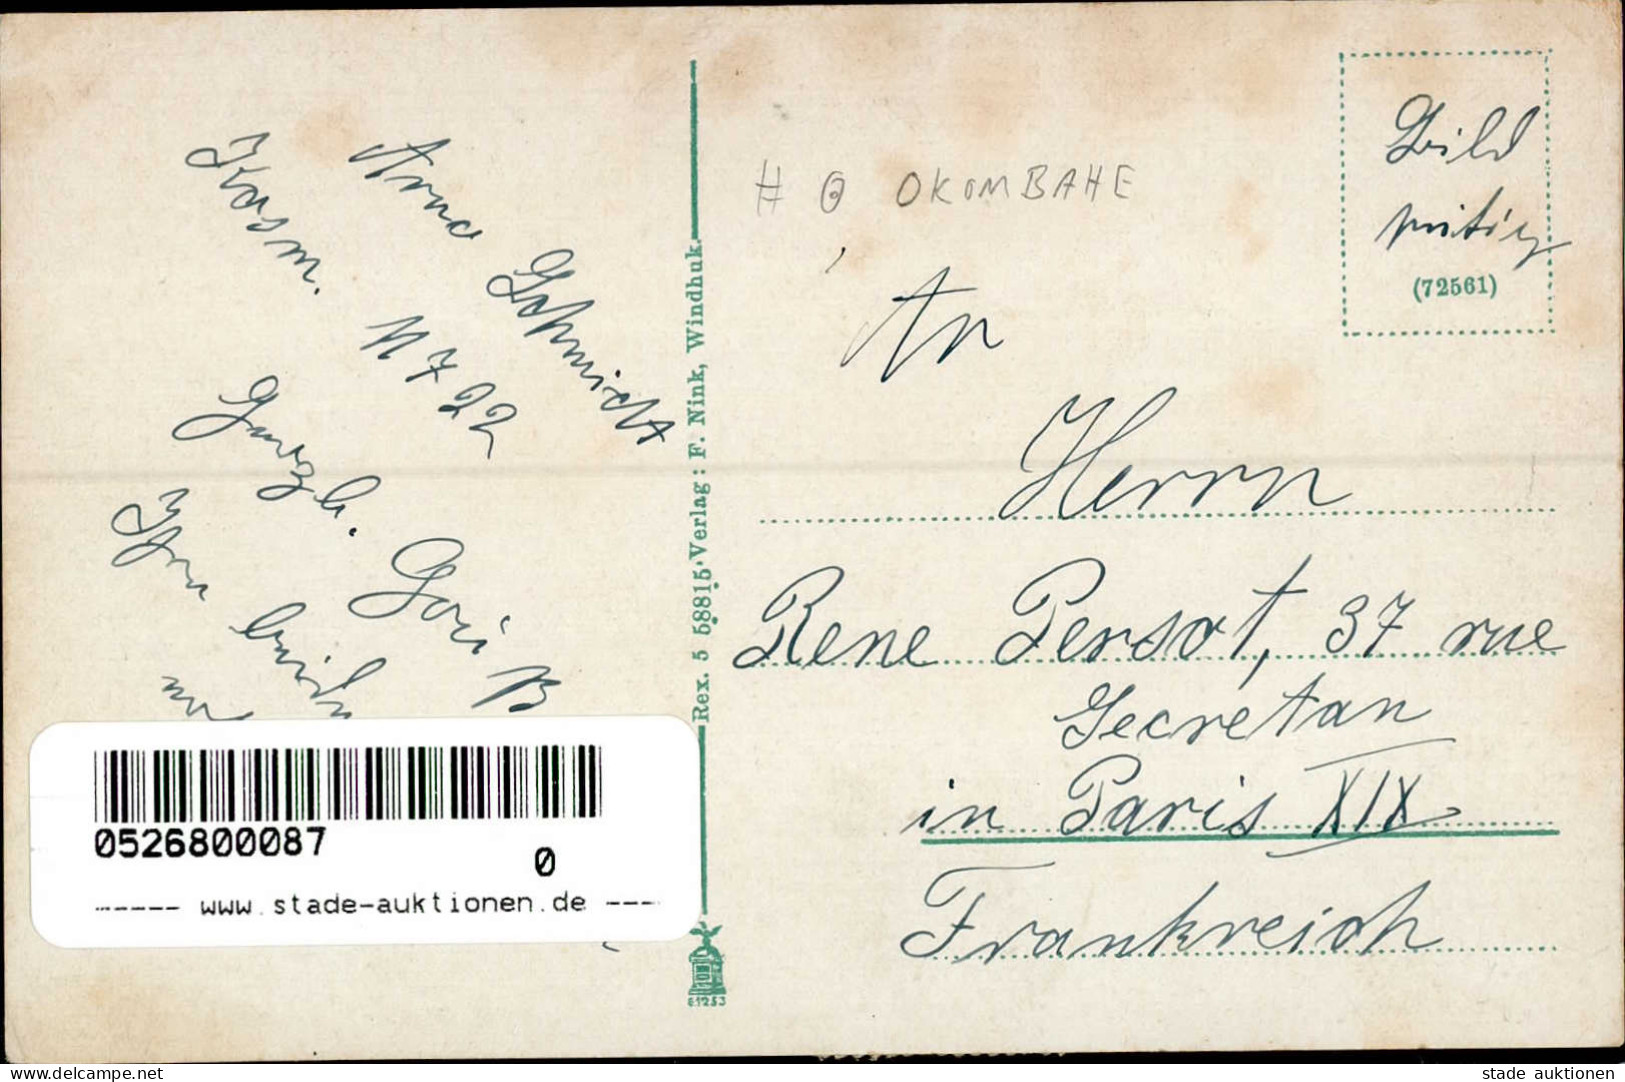 Arno Schmidt
Kosm.
N 722
Gori B
OKOMBAHE
Bild
seitig
(72561)
An
Herrn
Rene Persot, 37 rue
Secretan
in Paris XIX
Frankreich
Rex. 5 58815. Verlag: F. Nink, Windhuk.
61253
0526800087
0
----- www.stade-auktionen.de ---
delcampe.net
stade auktionen